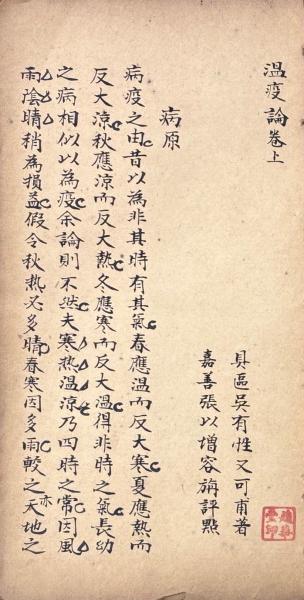 溫疫論卷上
具區吳有性又可甫著
嘉善張以增容旃評點
病原
病疫之由昔以為非其時有其氣春應溫而反大寒夏應熱而
反大涼秋應涼而反大熱冬應寒而反大溫得非時之氣長幼
之病相似以為疫余論則不然夫寒熱溫涼乃四時之常因風
雨陰晴稍為損益假令秋熱必多晴春寒因多雨較之天地之
亦